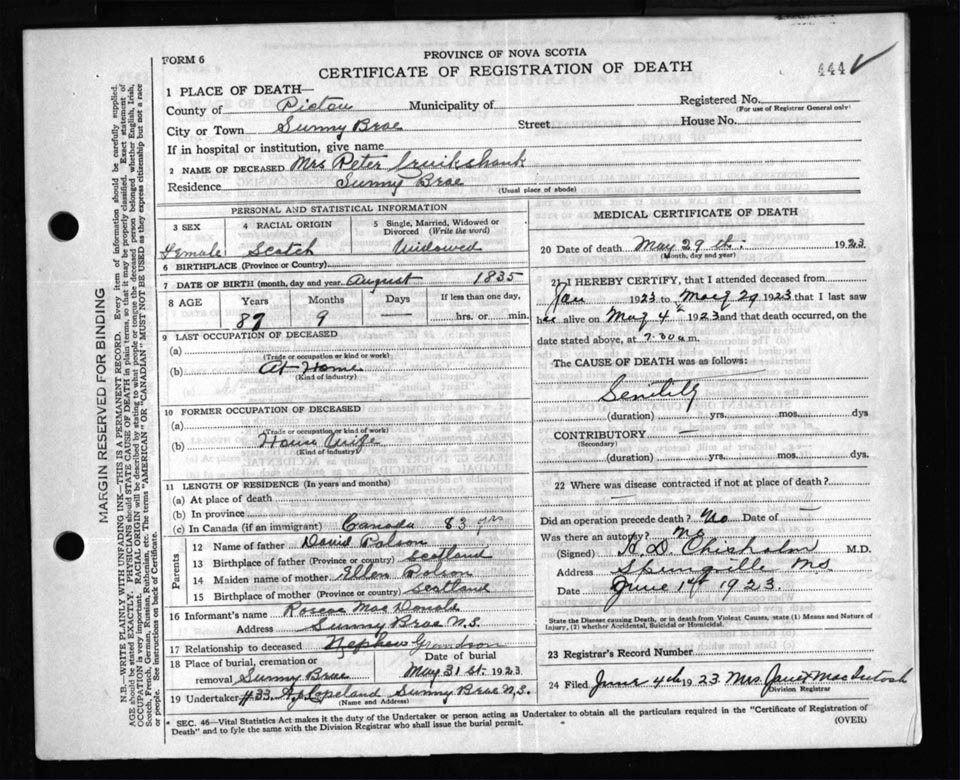 FORM 6
PROVINCE OF NOVA SCOTIA
CERTIFICATE OF REGISTRATION OF DEATH
444
1 PLACE OF DEATH—
County of Pictou Municipality of
Registered No.
(For use of Registrar General only)
City or Town Sunny Brae Street House No.
If in hospital or institution, give name
2 NAME OF DECEASED Mrs Peter Cruikshank
Residence Sunny Brae
(Usual place of abode)
PERSONAL AND STATISTICAL INFORMATION
3 SEX
4 RACIAL ORIGIN
5 Single, Married, Widowed or Divorced (Write the word)
Female Scotch Widowed
6 BIRTHPLACE (Province or Country)
7 DATE OF BIRTH (month, day and year) August 1835
8 AGE Years Months Days If less than one day,
87 9 — hrs. or min.
9 LAST OCCUPATION OF DECEASED
(a)
(Trade or occupation or kind or work)
(b) At Home
(Kind of industry)
10 FORMER OCCUPATION OF DECEASED
(a)
(Trade or occupation or kind of work)
(b) House Wife
(Kind of industry)
11 LENGTH OF RESIDENCE (In years and months)
(a) At place of death
(b) In province
(c) In Canada (if an immigrant) Canada 83 yrs
Parents
12 Name of father David Polson
13 Birthplace of father (Province or country) Scotland
14 Maiden name of mother Ellen Polson
15 Birthplace of mother (Province or country) Scotland
16 Informant's name Roscoe MacDonald
Address Sunny Brae N.S.
17 Relationship to deceased Nephew Grandson
18 Place of burial, cremation or removal Sunny Brae
Date of burial
May 31st 1923
19 Undertaker #33 Copeland Sunny Brae N.S.
(Name and Address)
MEDICAL CERTIFICATE OF DEATH
20 Date of death May 29th 1923
(Month, day and year)
21 I HEREBY CERTIFY, that I attended deceased from
Jan 1923 to May 29 1923 that I last saw
her alive on May 4th 1923 and that death occurred, on the
date stated above, at 7.30 a.m.
The CAUSE OF DEATH was as follows:
Senility
(duration) yrs. mos. dys
CONTRIBUTORY —
(Secondary)
(duration) yrs. mos. dys.
22 Where was disease contracted if not at place of death?
—
Did an operation precede death? No Date of —
Was there an autopsy? No
(Signed) H. D. Chisholm M.D.
Address Springville NS
Date June 1st 1923.
State the Disease causing Death, or in death from Violent Causes, state (1) Means and Nature of
Injury, (2) whether Accidental, Suicidal or Homicidal.
23 Registrar's Record Number
24 Filed June 4th 1923 Mrs. Janet MacIntosh
Division Registrar
* SEC. 46—Vital Statistics Act makes it the duty of the Undertaker or person acting as Undertaker to obtain all the particulars required in the "Certificate of Registration of
Death" and to fyle the same with the Division Registrar who shall issue the burial permit.
(OVER)
MARGIN RESERVED FOR BINDING
N.B.—WRITE PLAINLY WITH UNFADING INK—THIS IS A PERMANENT RECORD. Every item of information should be carefully supplied.
AGE should be stated EXACTLY. PHYSICIANS should STATE CAUSE OF DEATH in plain terms, so that it may be properly classified. Exact statement of
OCCUPATION is very important. RACIAL ORIGIN will be described by stating to what people or tongue the deceased person belonged whether English, Irish,
Scotch, French, German, Russian, Ruthenian, etc. The terms "AMERICAN" OR "CANADIAN" MUST NOT BE USED as they express citizenship but not a race
or people. See instructions on back of Certificate.